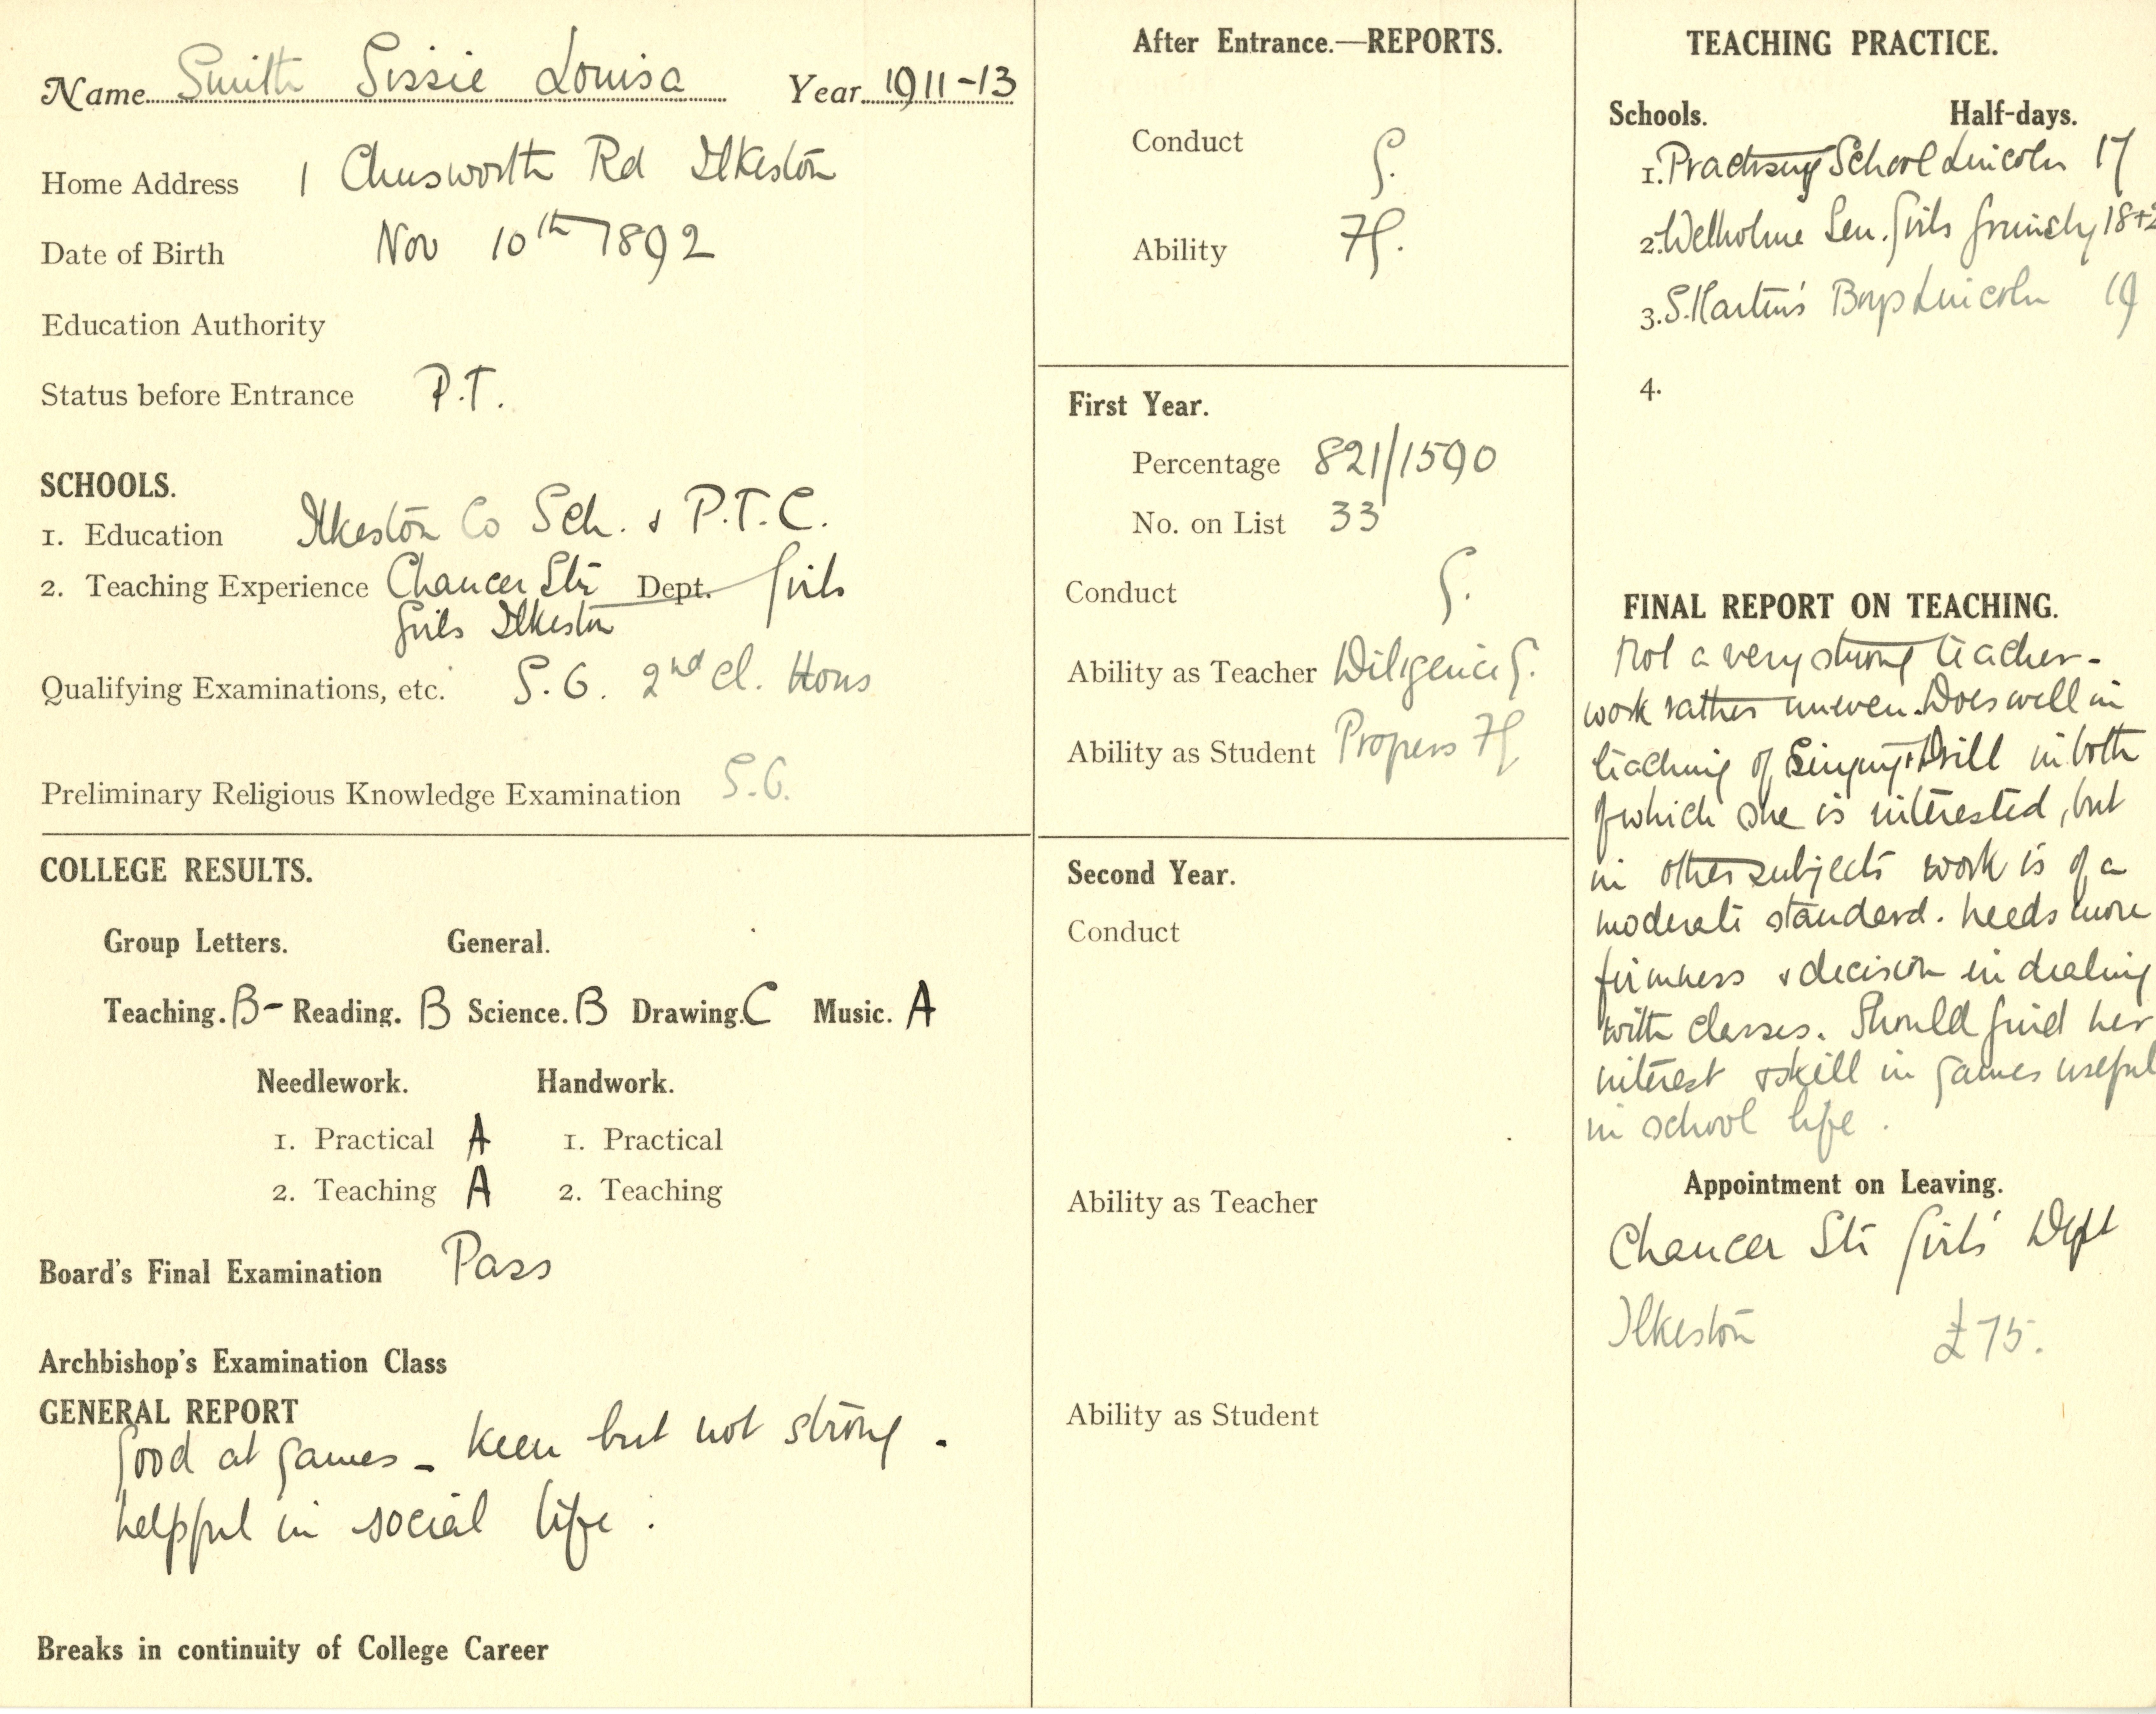 Name Smith Sissie Louisa Year 1911-13
Home Address 1 Rd Ilkeston
Date of Birth Nov 10th 1892
Education Authority
Status before Entrance P.T.
SCHOOLS.
1. Education Ilkeston Co Sch. & P.T.C.
2. Teaching Experience Chaucer Str Dept. Girls
Girls Ilkeston
Qualifying Examinations, etc. 2nd Cl. Hons
Preliminary Religious Knowledge Examination
COLLEGE RESULTS.
Group Letters. General.
Teaching. B- Reading. B Science. B Drawing. C Music. A
Needlework. Handwork.
1. Practical A 1. Practical
2. Teaching A 2. Teaching
Board's Final Examination Pass
Archbishop's Examination Class
GENERAL REPORT
Good at games - keen but not strong.
helpful in social life.
Breaks in continuity of College Career
After Entrance.—REPORTS.
Conduct G.
Ability 7G.
First Year.
Percentage 821/1590
No. on List 33
Conduct G.
Ability as Teacher Diligence G.
Ability as Student Progress 7G
Second Year.
Conduct
Ability as Teacher
Ability as Student
TEACHING PRACTICE.
Schools. Half-days.
1. Practising School Lincoln 17
2. Welholme Sen. Girls Grimsby 18+2
3. S. Martin's Boys Lincoln 19
4.
FINAL REPORT ON TEACHING.
Not a very strong teacher-
work rather uneven. Does well in
teaching of Singing & Drill in both
of which she is interested, but
in other subjects work is of a
moderate standard. Needs more
firmness & decision in dealing
with classes. Should find her
interest & skill in games useful
in school life.
Appointment on Leaving.
Chaucer Str Girls' Dept
Ilkeston £75.